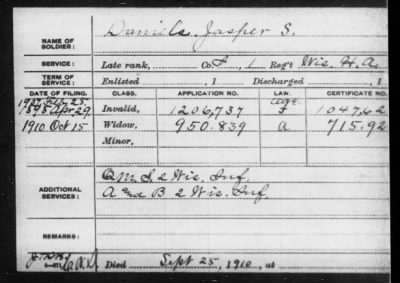 NAME OF SOLDIER: Daniels, Jasper S.
SERVICE: Late rank, Co. I, 1 Reg't Wis. H.A.
TERM OF SERVICE: Enlisted , 1 Discharged , 1
DATE OF FILING. CLASS. APPLICATION NO. LAW. CERTIFICATE NO.
1907 Feb 25. Age.
1898 Apr. 29. Invalid, 1206,737
1910 Oct 15 Widow, 950.839 a 715.92
Minor,
ADDITIONAL SERVICES:
Q.M.S. 2 Wis. Inf.
A and B 2 Wis. Inf.
REMARKS:
Died Sept 25, 1910, at